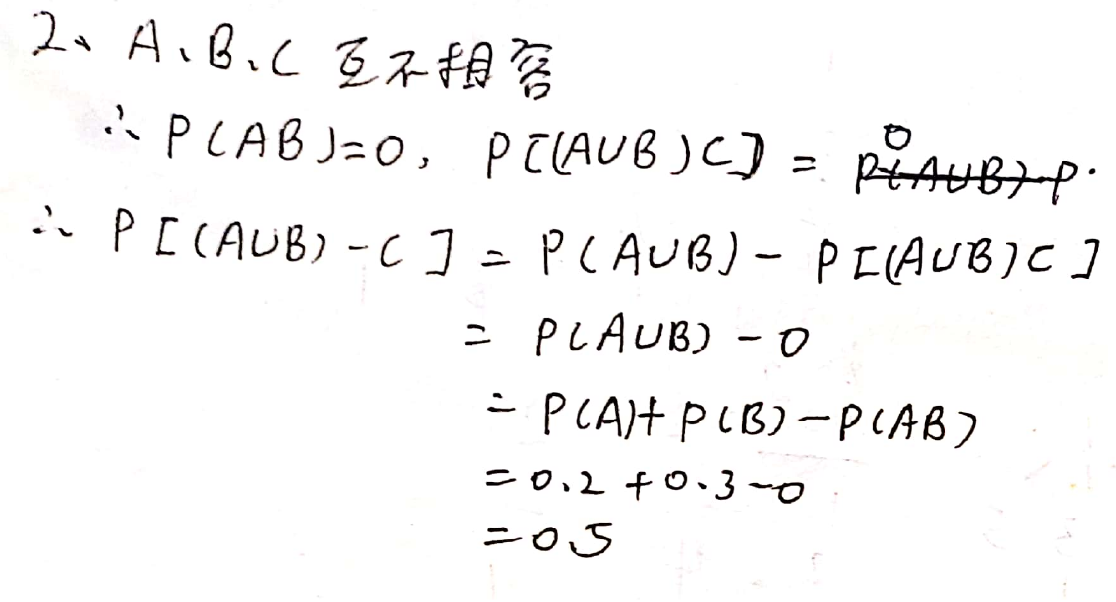 2、A、B、C 互不相容
∴ P(AB)=0, P[(A∪B)C] = 0
∴ P[(A∪B)-C] = P(A∪B) - P[(A∪B)C]
= P(A∪B) - 0
= P(A)+P(B)-P(AB)
=0.2+0.3-0
=0.5